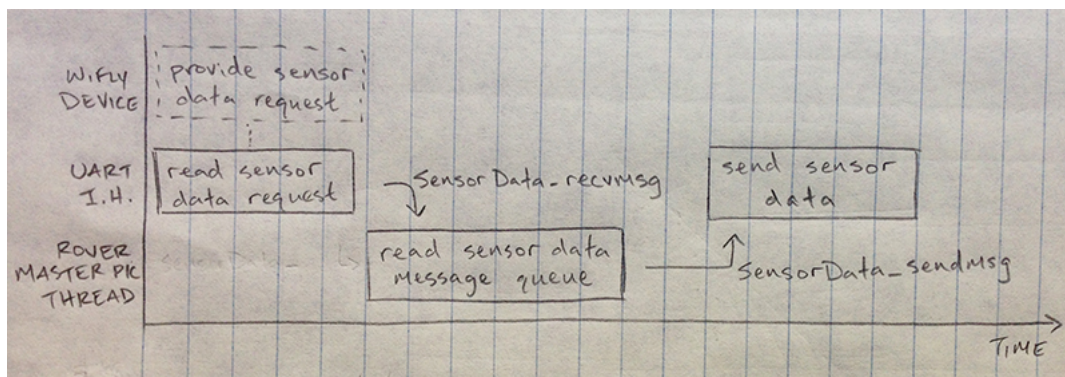 WiFLY
DEVICE
provide sensor
data request
UART
I.H.
read sensor
data request
SensorData_recvmsg
send sensor
data
ROVER
MASTER PIC
THREAD
read sensor data
message queue
SensorData_sendmsg
TIME